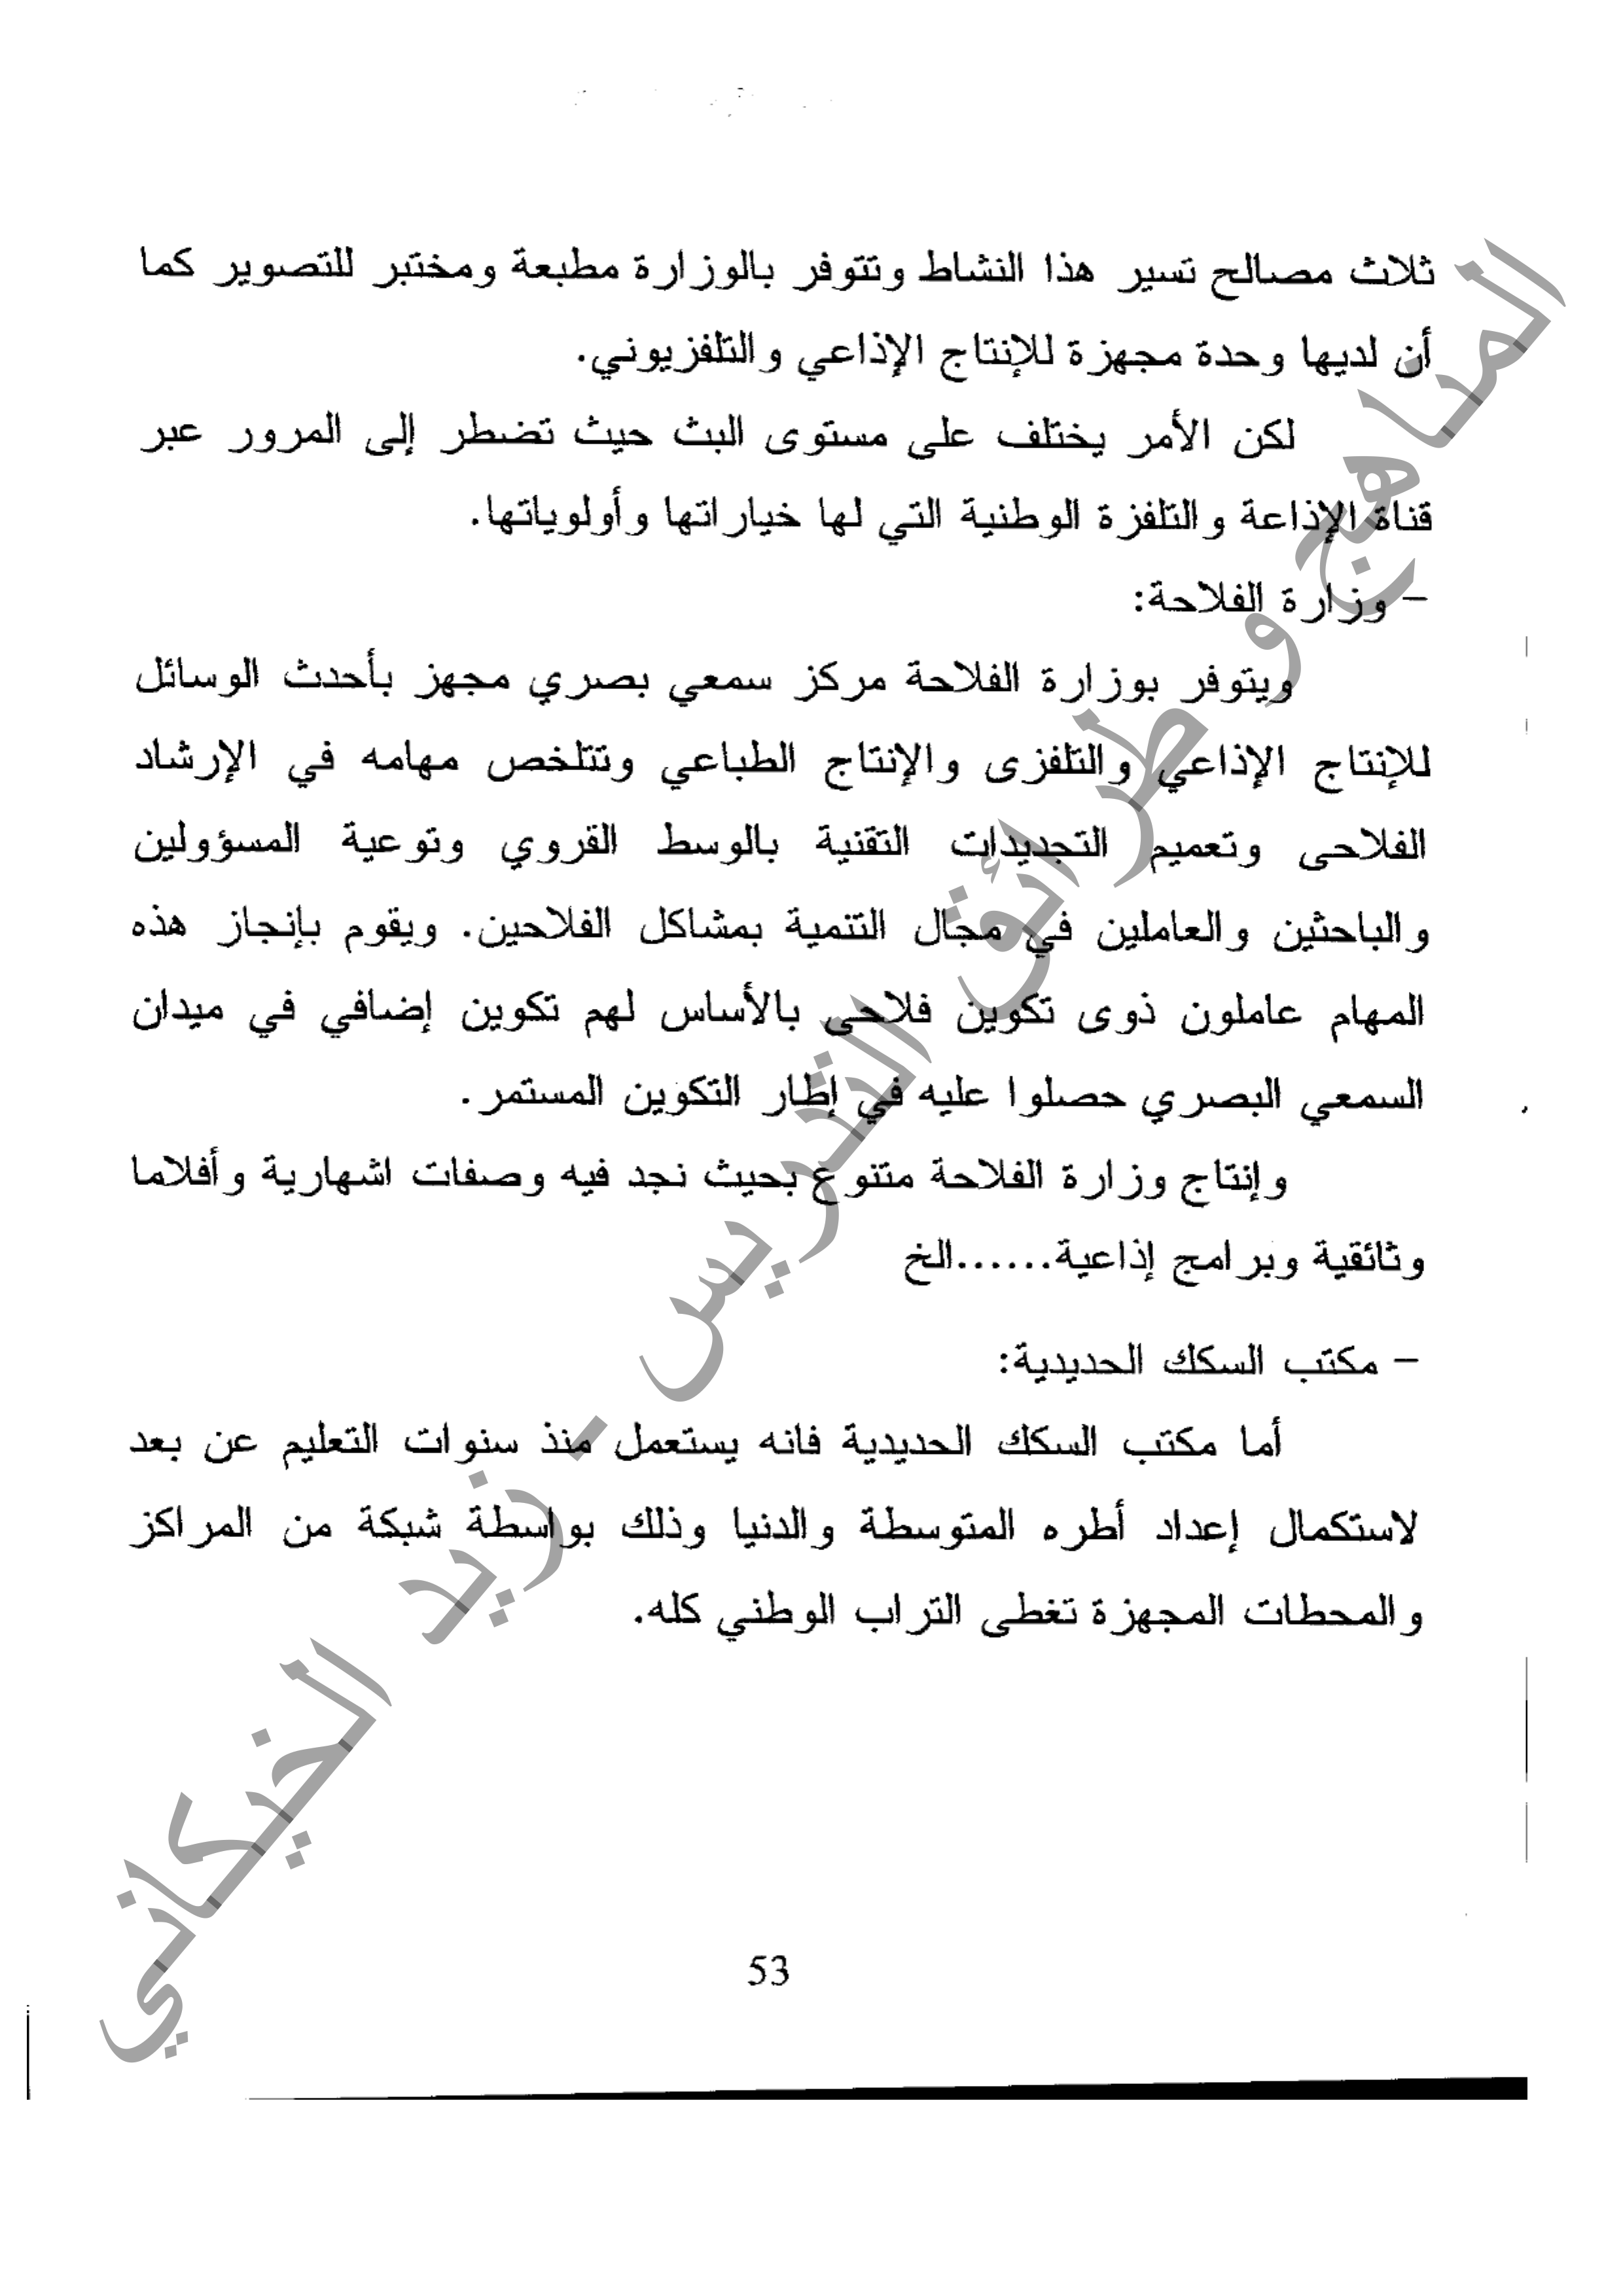 ثلاث مصالح تسير هذا النشاط وتتوفر بالوزارة مطبعة ومختبر للتصوير كما
أن لديها وحدة مجهزة للإنتاج الإذاعي والتلفزيوني.
لكن الأمر يختلف على مستوى البث حيث تضطر إلى المرور عبر
قناة الإذاعة والتلفزة الوطنية التي لها خياراتها وأولوياتها.
– وزارة الفلاحة:
ويتوفر بوزارة الفلاحة مركز سمعي بصري مجهز بأحدث الوسائل
للإنتاج الإذاعي والتلفزى والإنتاج الطباعي وتتلخص مهامه في الإرشاد
الفلاحى وتعميم التجديدات التقنية بالوسط القروي وتوعية المسؤولين
والباحثين والعاملين في مجال التنمية بمشاكل الفلاحين. ويقوم بإنجاز هذه
المهام عاملون ذوى تكوين فلاحى بالأساس لهم تكوين إضافي في ميدان
السمعي البصري حصلوا عليه في إطار التكوين المستمر.
وإنتاج وزارة الفلاحة متنوع بحيث نجد فيه وصفات اشهارية وأفلاما
وثائقية وبرامج إذاعية......الخ
– مكتب السكك الحديدية:
أما مكتب السكك الحديدية فانه يستعمل منذ سنوات التعليم عن بعد
لاستكمال إعداد أطره المتوسطة والدنيا وذلك بواسطة شبكة من المراكز
والمحطات المجهزة تغطى التراب الوطني كله.
53
المناهج و طرائق التدريس - زيد الخيكاني